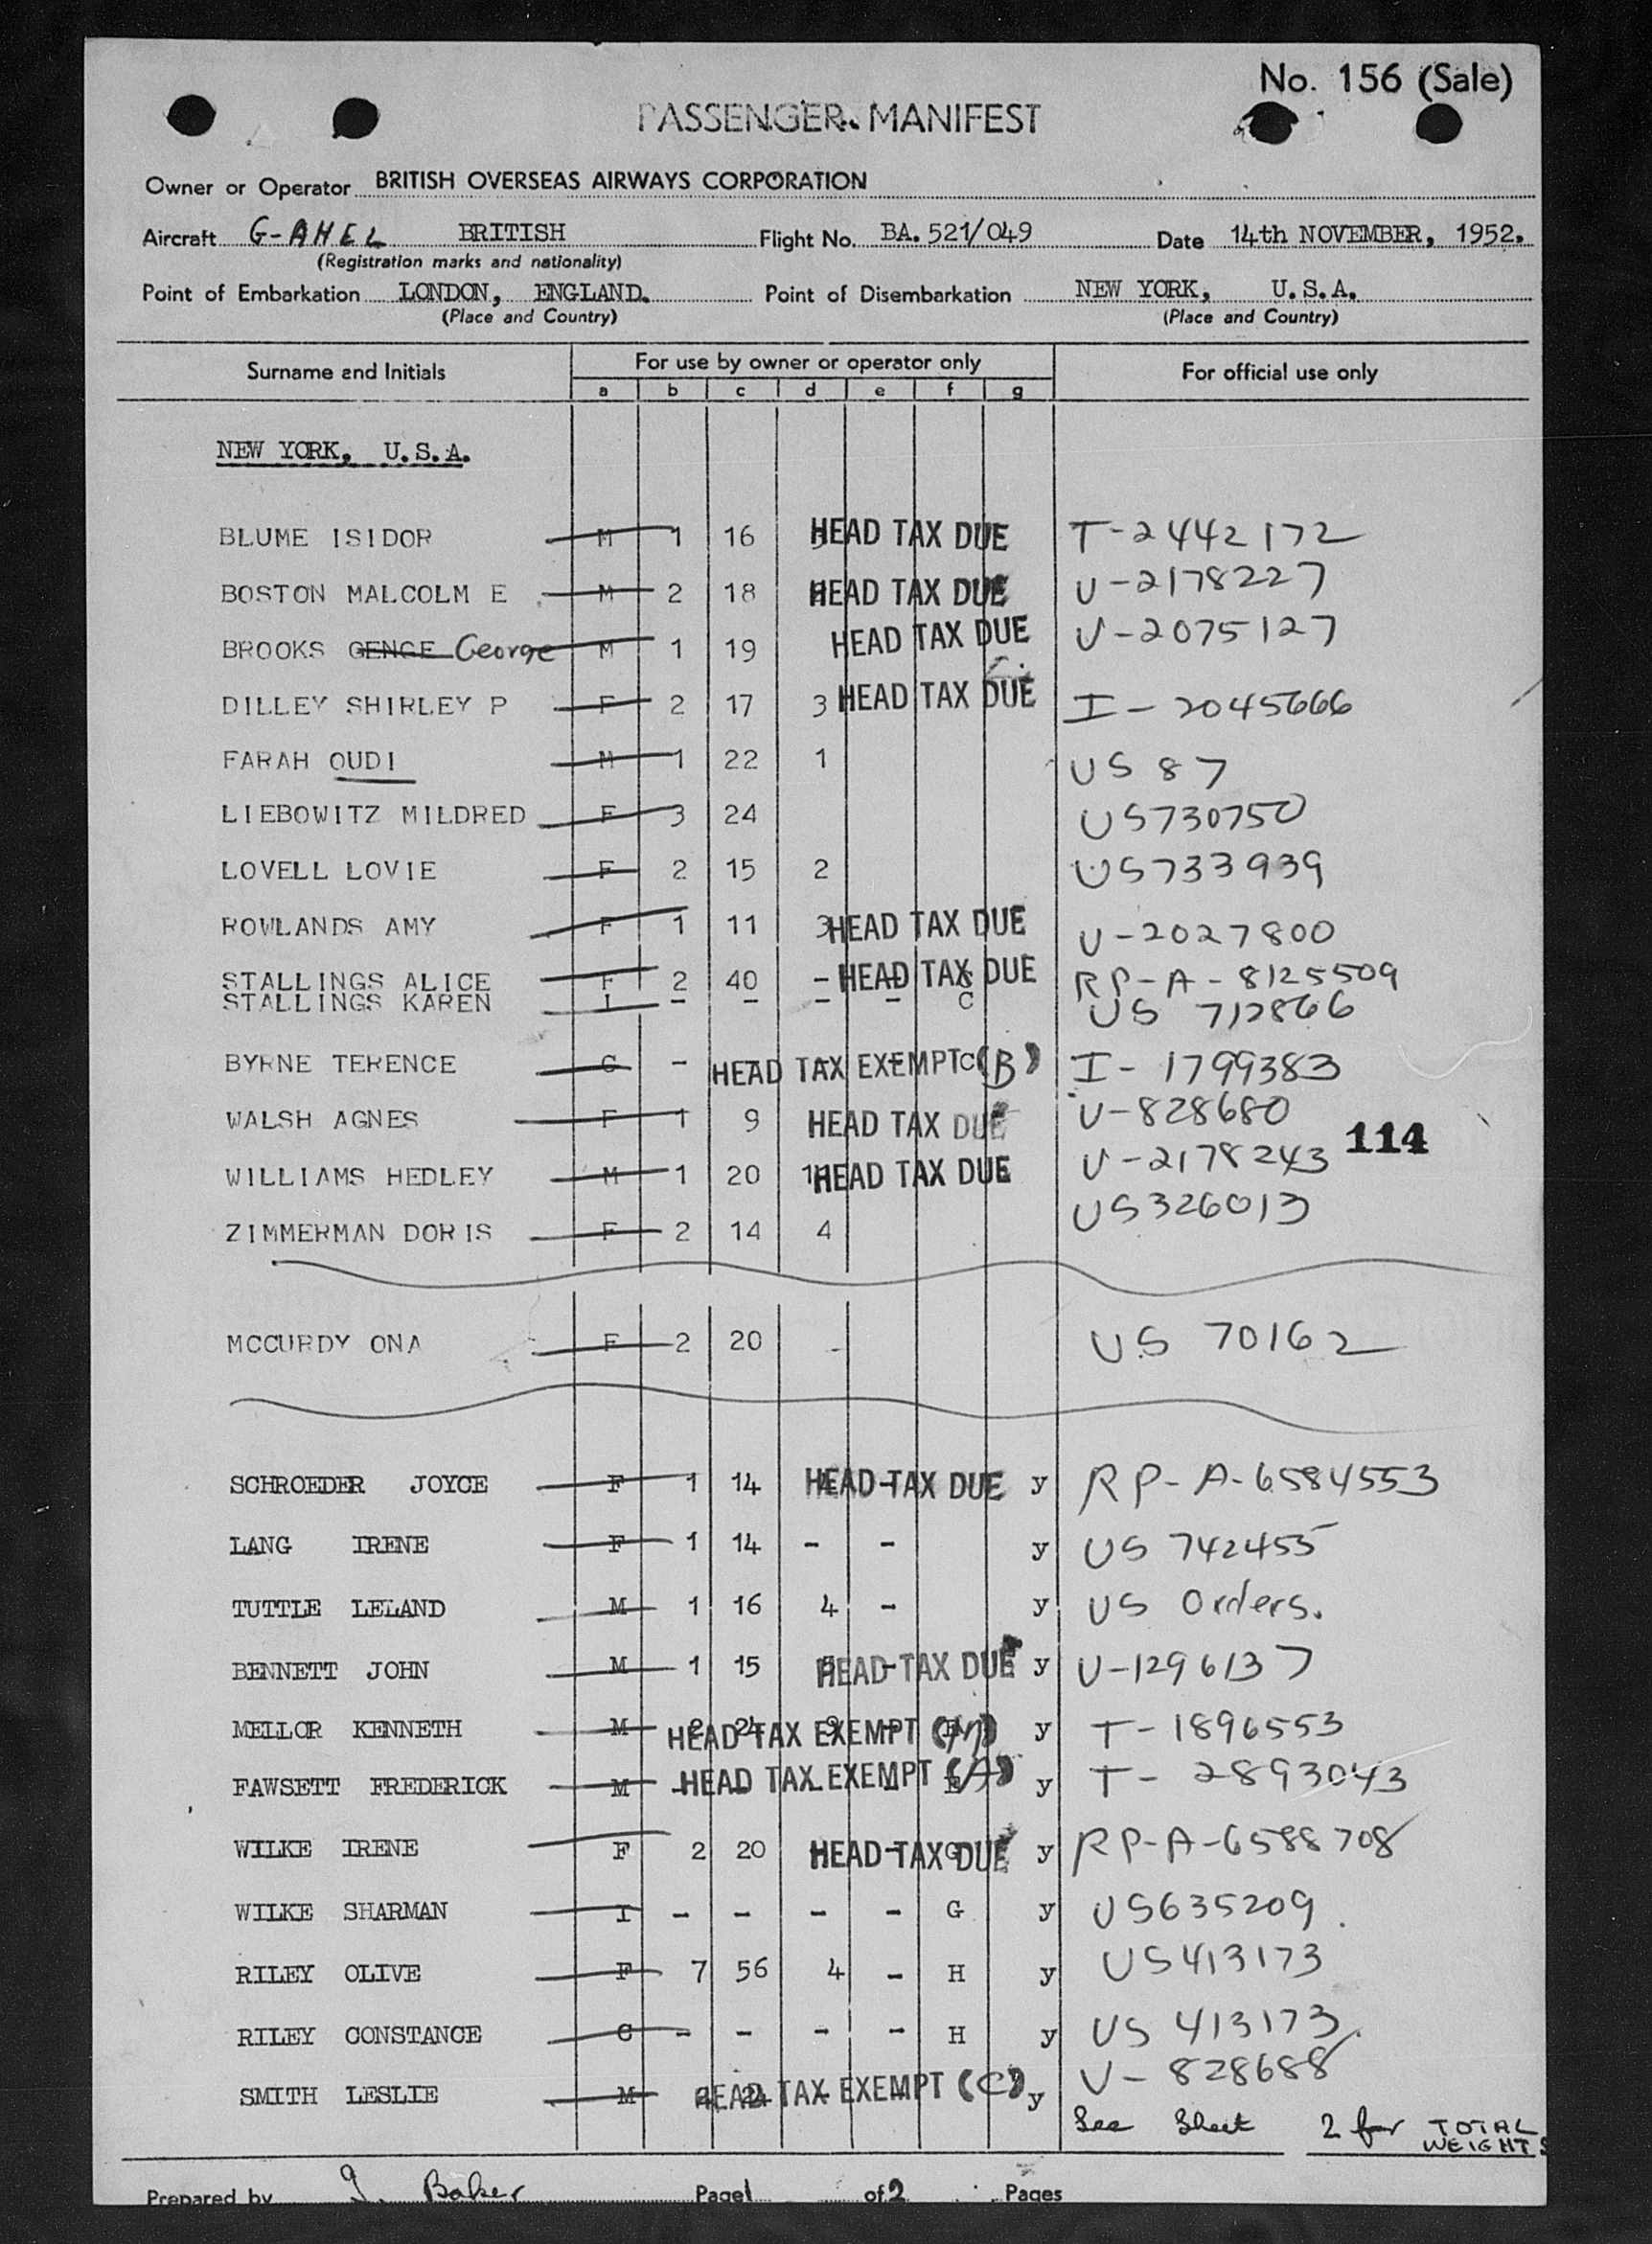 No. 156 (Sale)
PASSENGER MANIFEST
Owner or Operator BRITISH OVERSEAS AIRWAYS CORPORATION
Aircraft G-AHEL BRITISH Flight No. BA.521/049 Date 14th NOVEMBER, 1952.
(Registration marks and nationality)
Point of Embarkation LONDON, ENGLAND. Point of Disembarkation NEW YORK, U.S.A.
(Place and Country) (Place and Country)
Surname and Initials For use by owner or operator only For official use only
a b c d e f g
NEW YORK, U.S.A.
BLUME ISIDOR M 1 16 HEAD TAX DUE T-2442172
BOSTON MALCOLM E M 2 18 HEAD TAX DUE U-2178227
BROOKS GENGE George M 1 19 HEAD TAX DUE U-2075127
DILLEY SHIRLEY P F 2 17 3 HEAD TAX DUE I-2045666
FARAH OUDI M 1 22 1 US 87
LIEBOWITZ MILDRED F 3 24 US730750
LOVELL LOVIE F 2 15 2 US733939
ROWLANDS AMY F 1 11 3 HEAD TAX DUE U-2027800
STALLINGS ALICE F 2 40 - HEAD TAX DUE RP-A-8125509
STALLINGS KAREN I - - - - C US 712866
BYRNE TERENCE C - HEAD TAX EXEMPT C (B) I-1799383
WALSH AGNES F 1 9 HEAD TAX DUE U-828680
114
WILLIAMS HEDLEY M 1 20 HEAD TAX DUE U-2178243
ZIMMERMAN DORIS F 2 14 4 US326013
MCCURDY ONA F 2 20 - US 70162
SCHROEDER JOYCE F 1 14 HEAD TAX DUE y RP-A-6584553
LANG IRENE F 1 14 - - y US 742455
TUTTLE LELAND M 1 16 4 - y US Orders.
BENNETT JOHN M 1 15 HEAD TAX DUE y U-1296137
MELLOR KENNETH M 2 24 HEAD TAX EXEMPT y T-1896553
FAWSETT FREDERICK M HEAD TAX EXEMPT (A) E y T-2893043
WILKE IRENE F 2 20 HEAD TAX DUE G y RP-A-6588708
WILKE SHARMAN I - - - - G y US635209
RILEY OLIVE F 7 56 4 - H y US413173
RILEY CONSTANCE C - - - - H y US 413173
SMITH LESLIE M HEAD TAX EXEMPT (C) y U-828688
See Sheet 2 for TOTAL WEIGHTS
Prepared by J. Baker Page 1 of 2 Pages